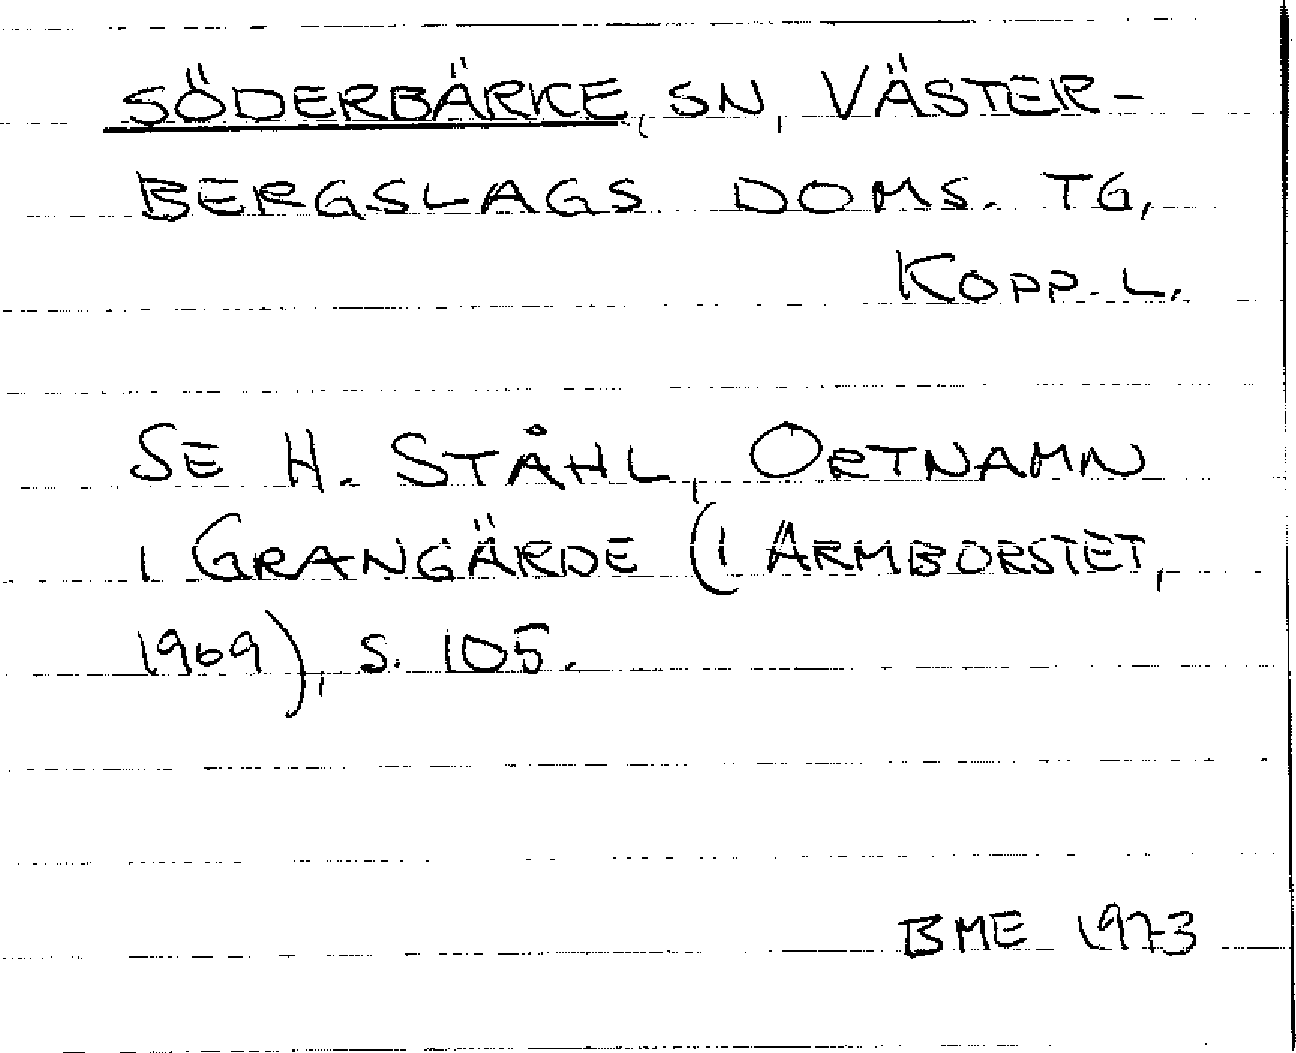 SÖDERBÄRKE, SN, VÄSTER-
BERGSLAGS DOMS. TG,
KOPP. L.
SE H. STÅHL, ORTNAMN
I GRANGÄRDE (I ARMBORSTET,
1969), S. 105.
BME 1973